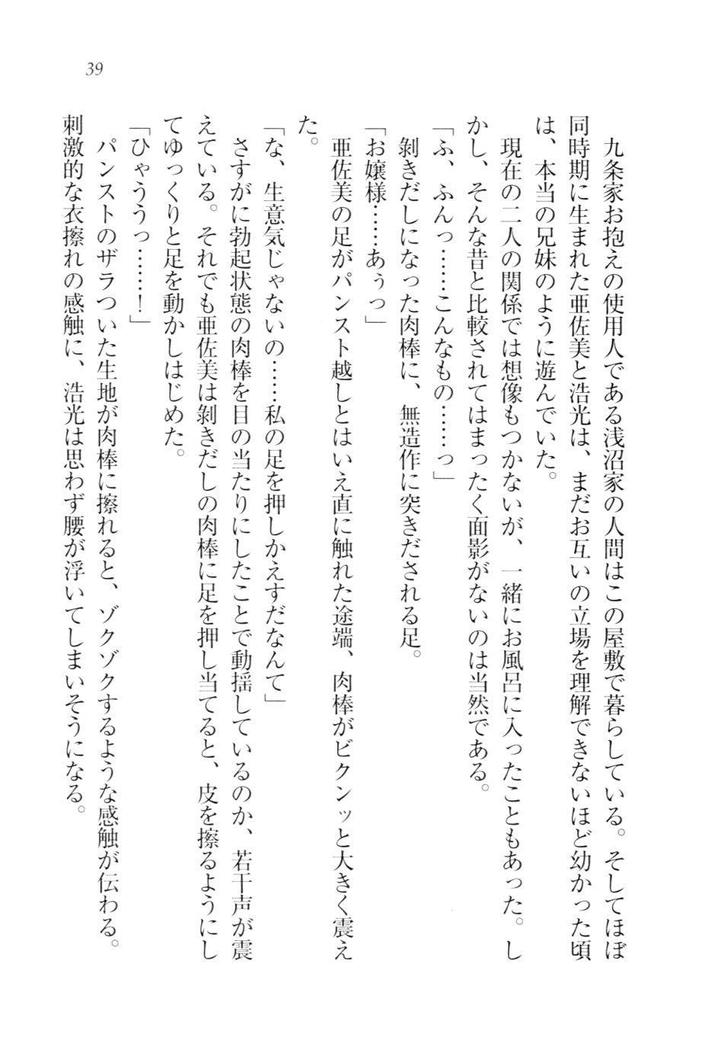 39
九条家お抱えの使用人である浅沼家の人間はこの屋敷で暮らしている。そしてほぼ
同時期に生まれた亜佐美と浩光は、まだお互いの立場を理解できないほど幼かった頃
は、本当の兄妹のように遊んでいた。
現在の二人の関係では想像もつかないが、一緒にお風呂に入ったこともあった。し
かし、そんな昔と比較されてはまったく面影がないのは当然である。
「ふ、ふんっ……こんなもの……っ」
剝きだしになった肉棒に、無造作に突きだされる足。
「お嬢様……あぅっ」
亜佐美の足がパンスト越しとはいえ直に触れた途端、肉棒がビクンッと大きく震え
た。
「な、生意気じゃないの……私の足を押しかえすだなんて」
さすがに勃起状態の肉棒を目の当たりにしたことで動揺しているのか、若干声が震
えている。それでも亜佐美は剝きだしの肉棒に足を押し当てると、皮を擦るようにし
てゆっくりと足を動かしはじめた。
「ひゃううっ……！」
パンストのザラついた生地が肉棒に擦れると、ゾクゾクするような感触が伝わる。
刺激的な衣擦れの感触に、浩光は思わず腰が浮いてしまいそうになる。